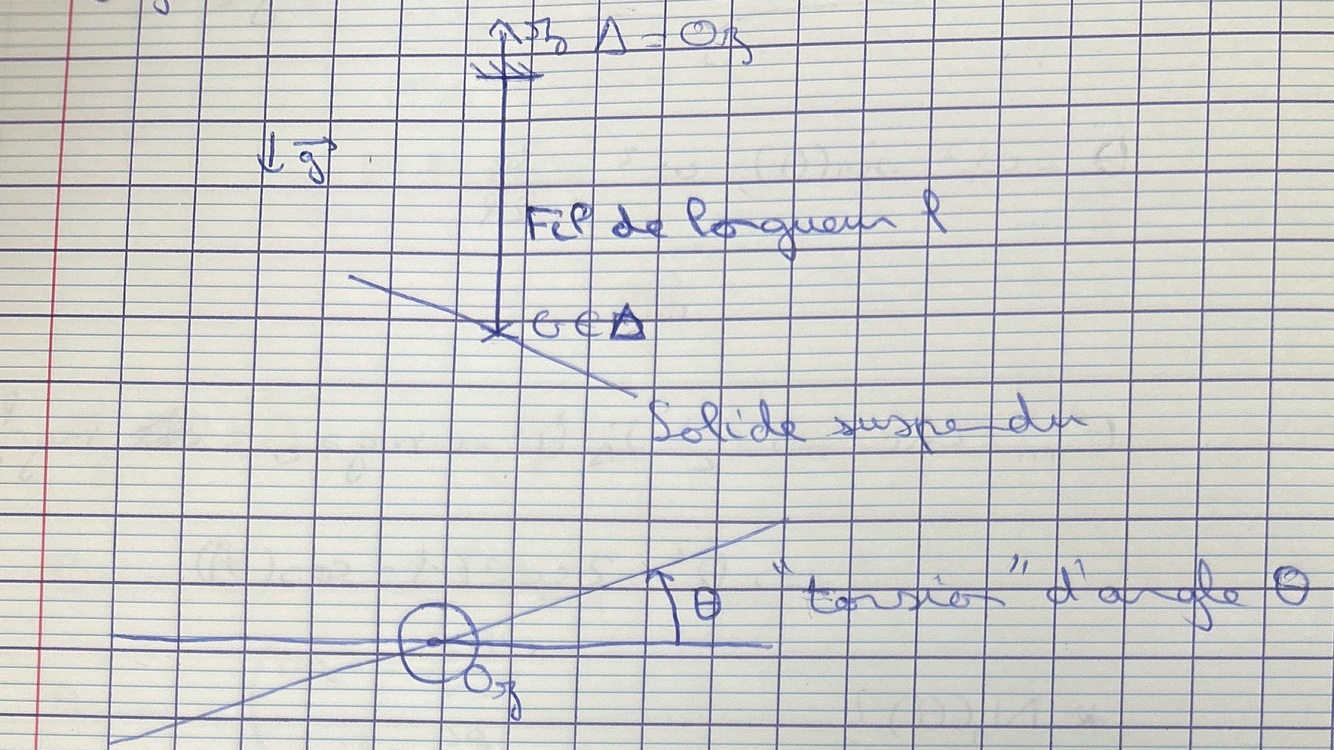 z Δ = Oz
g
Fil de longueur l
G ∈ Δ
Solide suspendu
θ
"torsion" d'angle θ
Oz